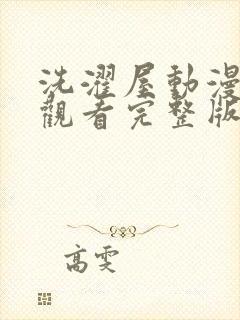 洗濯屋動漫
觀看完整版
高雯